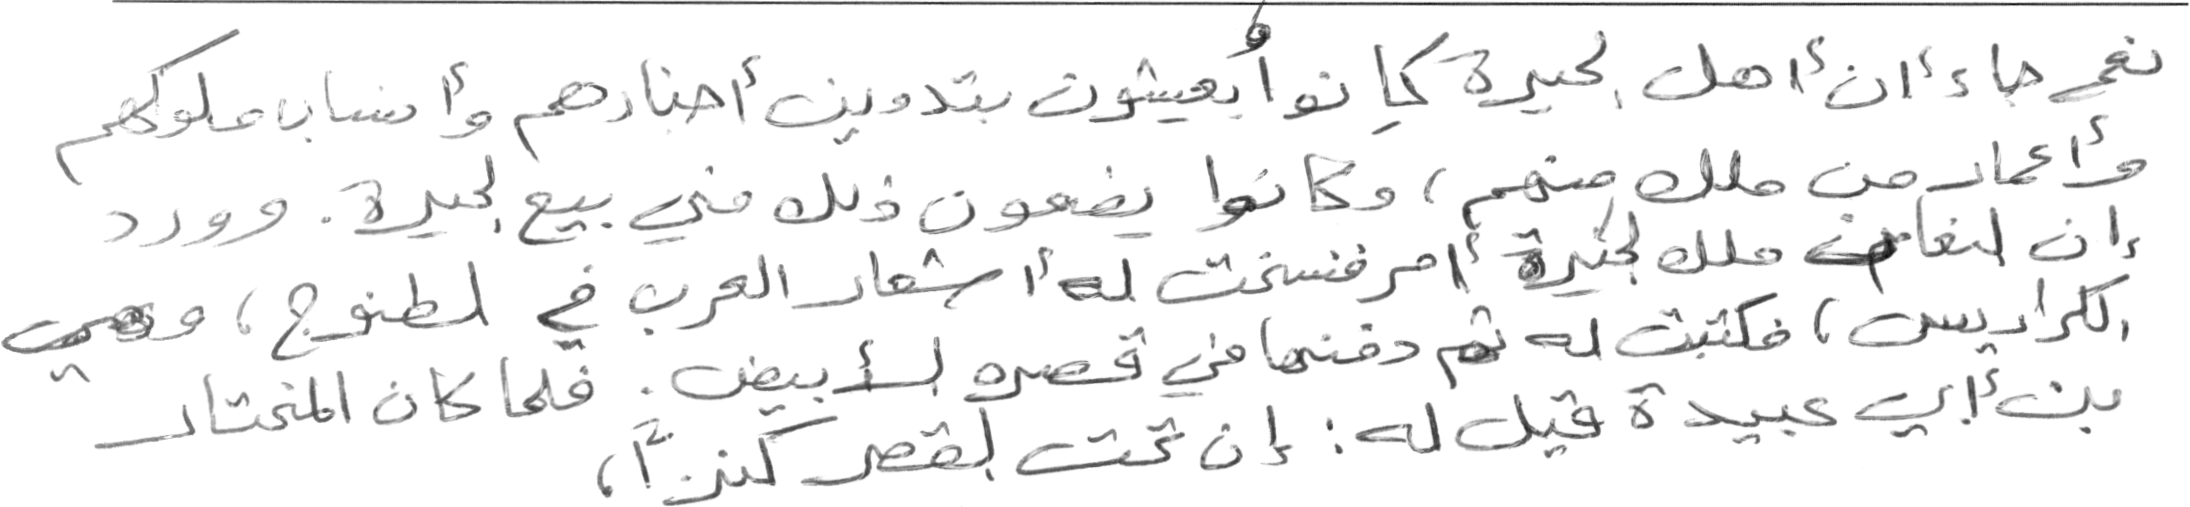 نعم جاء أن أهل الحيرة كانوا يعيشون بتدوين أخبارهم وأنساب ملوكهم
وأعمار من ملك منهم، وكانوا يضعون ذلك في بيع الحيرة. وورد
إن النعمان ملك الحيرة أمر فنسخت له أشعار العرب في الطنوج، وهي
الكراريس، فكتبت له ثم دفنها في قصره الأبيض. فلما كان المختار
بن أبي عبيدة قيل له: إن تحت القصر كنزاً،